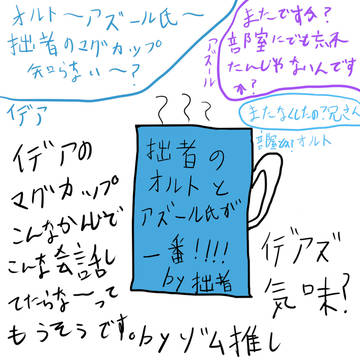 オルト〜アズール氏〜
拙者のマグカップ
知らない〜?
イデア
またですか?
部室にでも忘れ
たんじゃないんです
か?
アズール
またなくしたの?兄さん
オルト
拙者の
オルトと
アズール氏が
一番!!!!
by拙者
イデアの
マグカップ
こんなかんじで
こんな会話し
てたらな〜って
もうそうです。byゾム推し
イデアズ
気味?